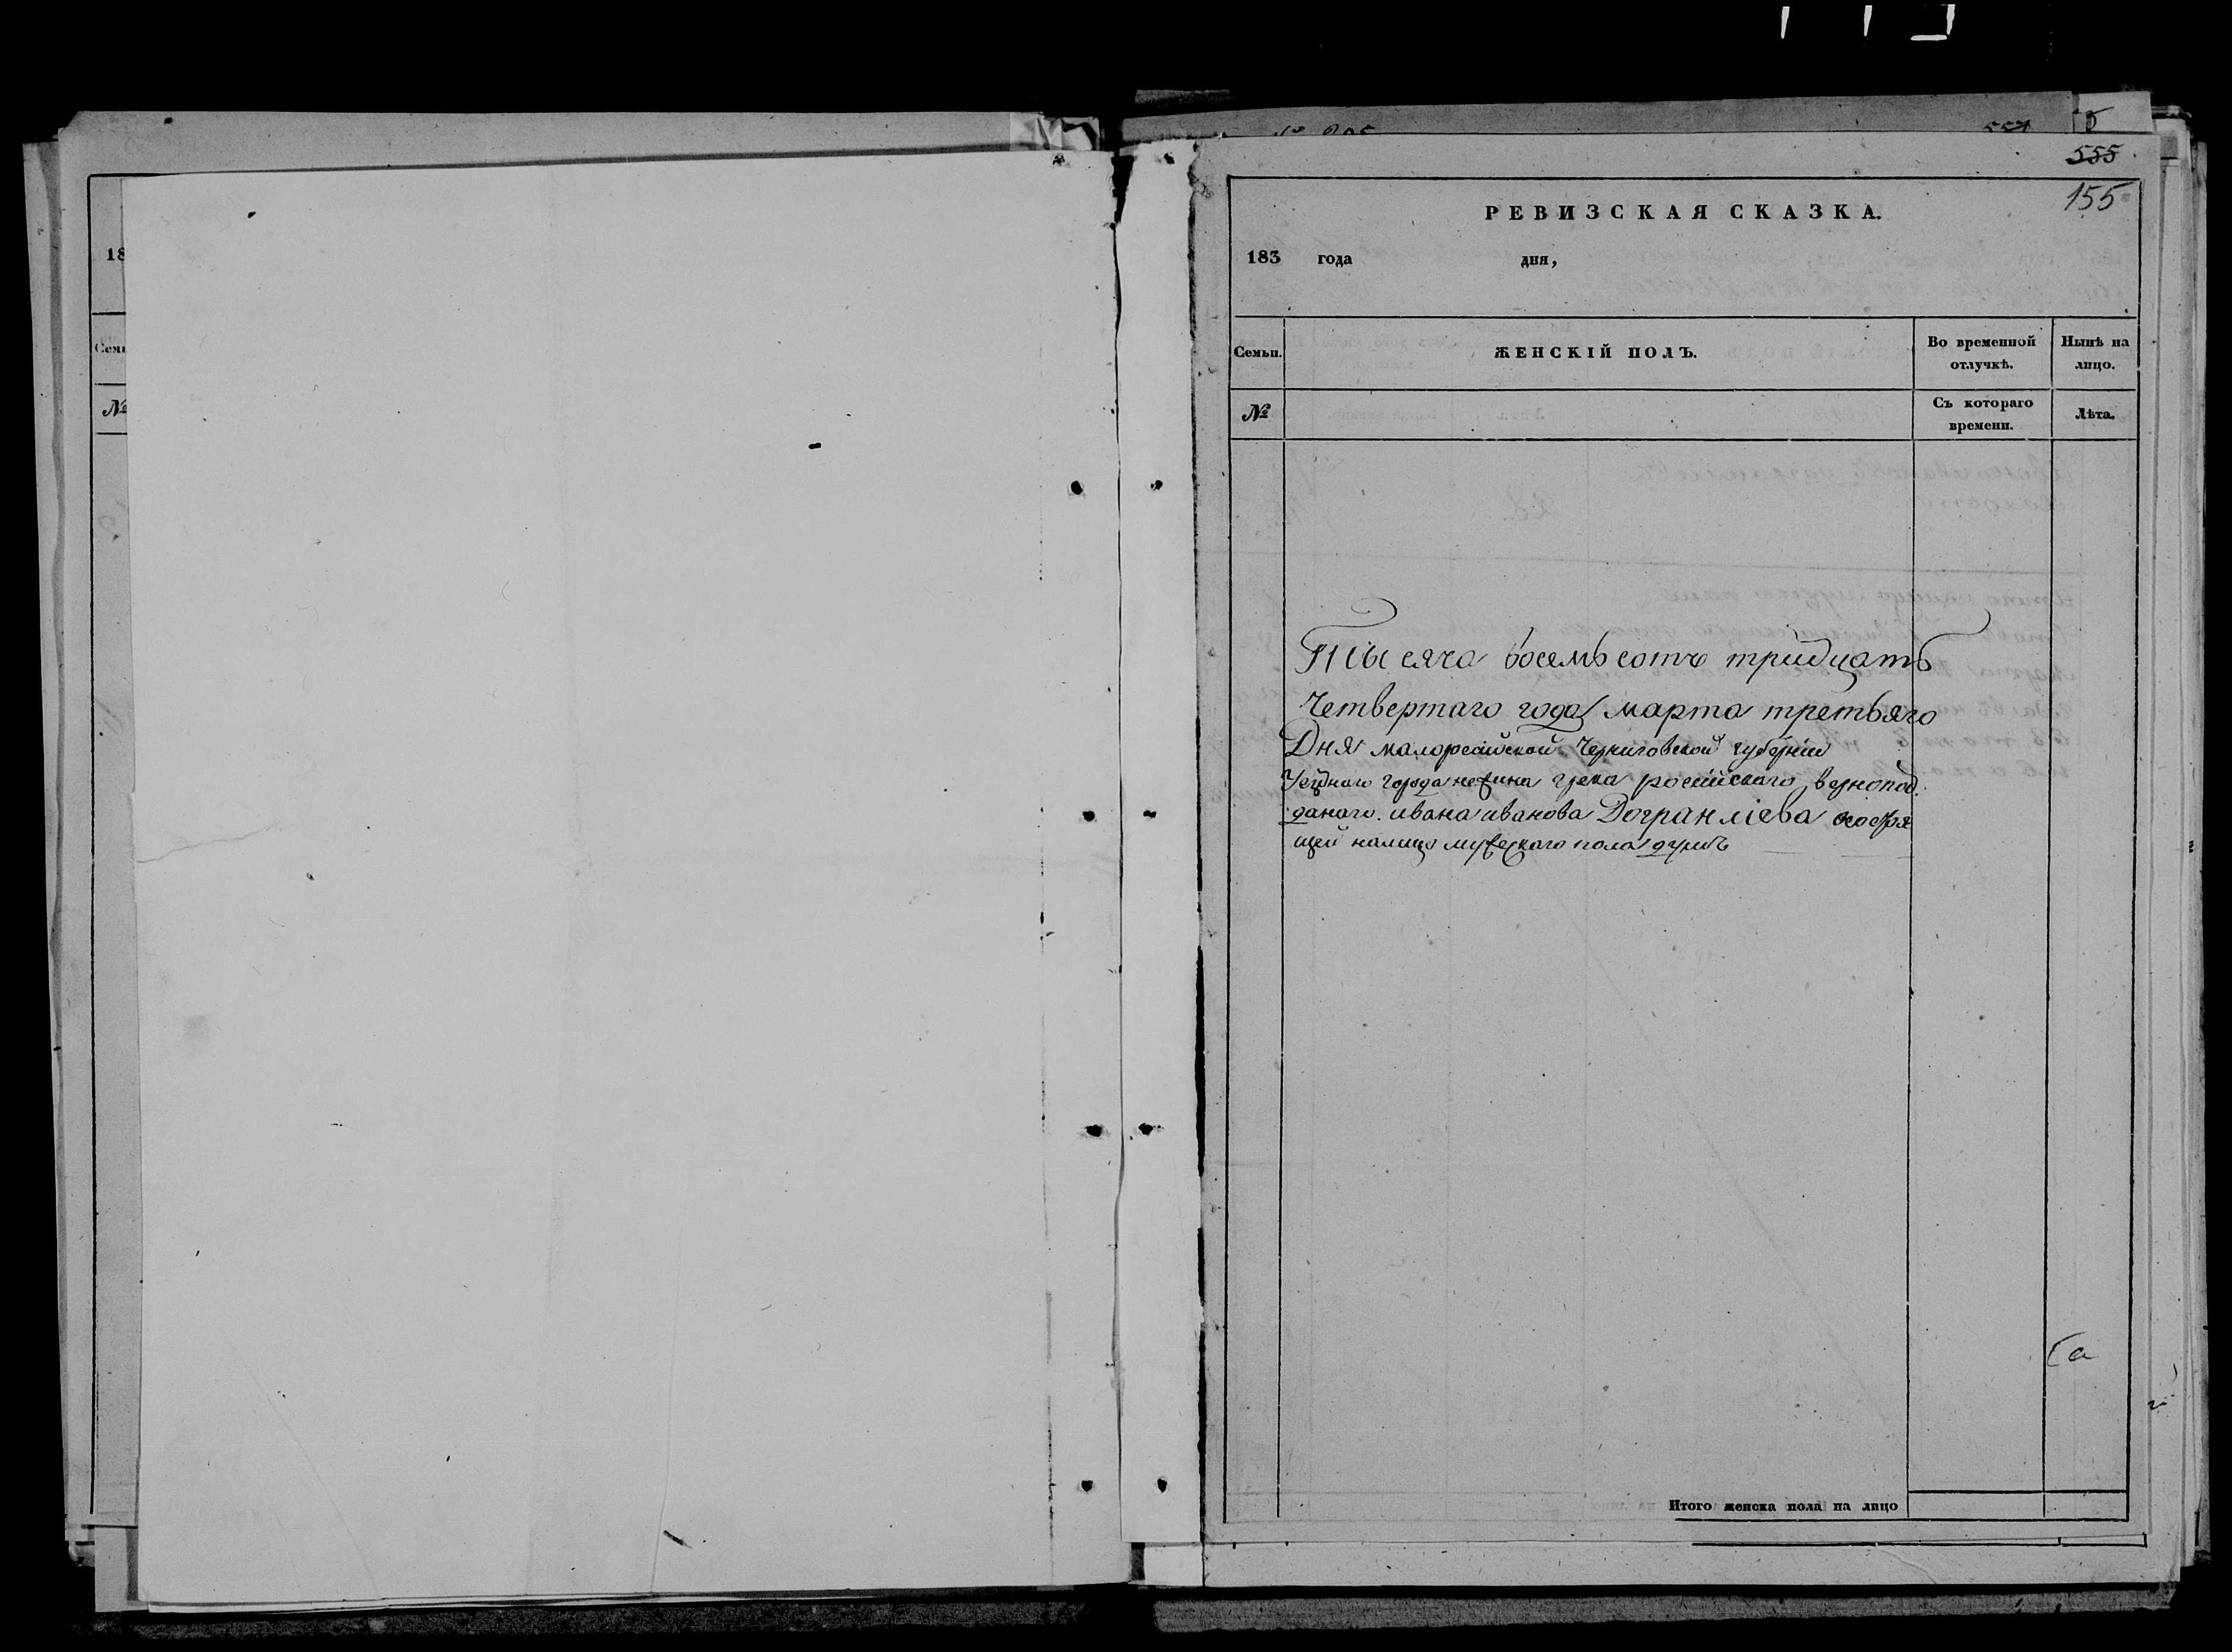 555
155
РЕВИЗСКАЯ СКАЗКА.
183 года дня,
Семьи. ЖЕНСКІЙ ПОЛЪ. Во временной отлучкѣ. Нынѣ на лицо.
№ Съ котораго времени. Лѣта.
Тысяча восемьсотъ тридцать
Четвертаго года марта третьяго
Дня малоросийской Черниговской губерніи
Уезднаго города нежина грека росийскаго вернопод
данаго. ивана иванова Дограндліева
щей налицо мужескаго пола душъ
Итого женска пола на лицо
18
№